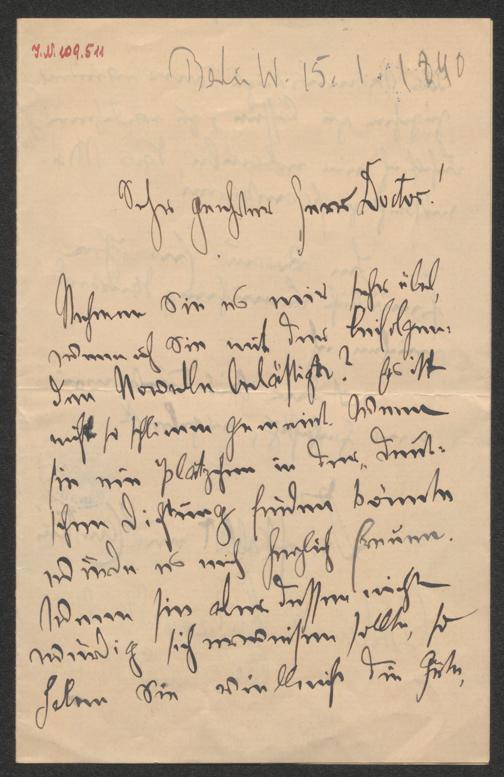 J.N. 109.511
Berlin W. 15. 1. 1890
Sehr geehrter Herr Doctor!
Nehmen Sie es mir sehr übel,
wenn ich Sie mit der beifolgen-
den Novelle belästige? Es ist
nicht so schlimm gemeint. Wenn
sie ein Plätzchen in der „Deut-
schen Dichtung" finden könnte
würde es mich herzlich freuen.
Wenn sie aber dessen nicht
würdig sich erweisen sollte, so
haben Sie vielleicht die Güte,